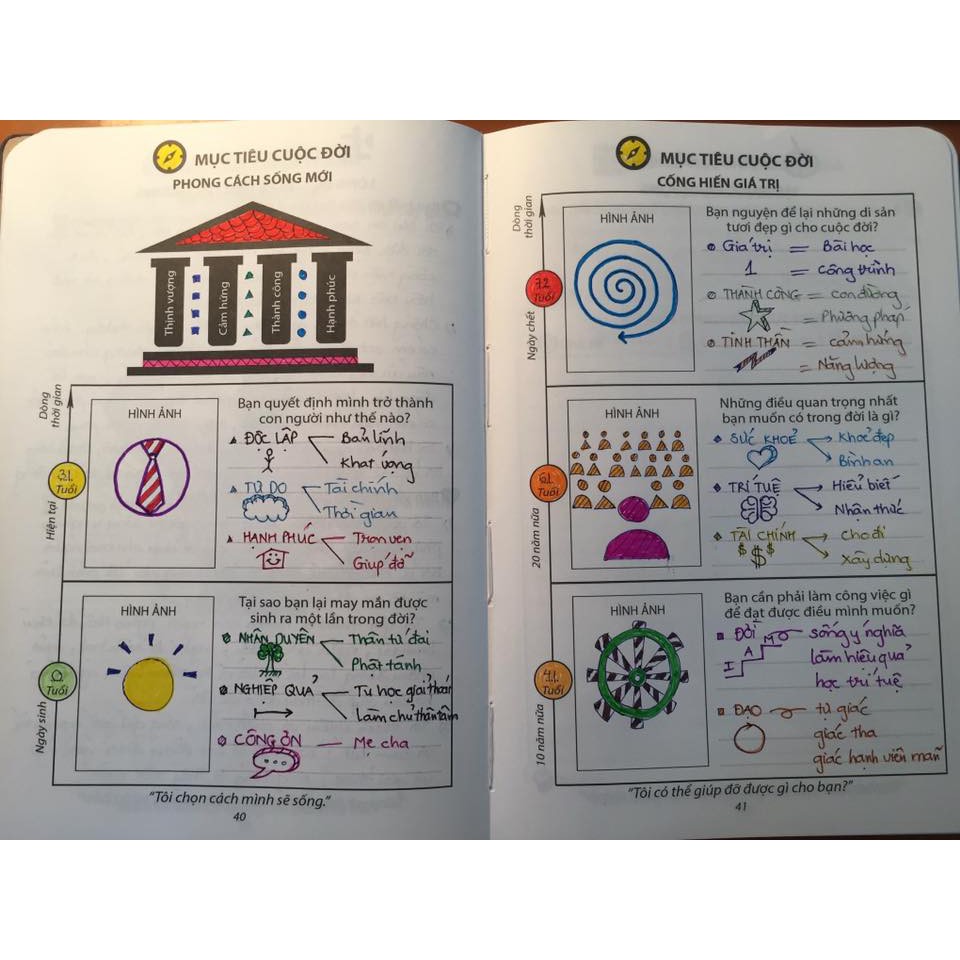 MỤC TIÊU CUỘC ĐỜI
PHONG CÁCH SỐNG MỚI
Thịnh vượng
Cảm hứng
Thành công
Hạnh phúc
Dòng thời gian
31 Tuổi
Hiện tại
HÌNH ẢNH
Bạn quyết định mình trở thành
con người như thế nào?
ĐỘC LẬP
Bản lĩnh
Khát vọng
TỰ DO
Tài chính
Thời gian
HẠNH PHÚC
Trọn vẹn
Giúp đỡ
0 Tuổi
Ngày sinh
HÌNH ẢNH
Tại sao bạn lại may mắn được
sinh ra một lần trong đời?
NHÂN DUYÊN
Thân tứ đại
Phật tánh
NGHIỆP QUẢ
Tu học giải thoát
Làm chủ thân tâm
CÔNG ƠN
Mẹ cha
"Tôi chọn cách mình sẽ sống."
40
MỤC TIÊU CUỘC ĐỜI
CỐNG HIẾN GIÁ TRỊ
Dòng thời gian
72 Tuổi
Ngày chết
HÌNH ẢNH
Bạn nguyện để lại những di sản
tươi đẹp gì cho cuộc đời?
Giá trị = Bài học
1 = công trình
THÀNH CÔNG = con đường
= Phương pháp
TINH THẦN = cảm hứng
= Năng lượng
61 Tuổi
20 năm nữa
HÌNH ẢNH
Những điều quan trọng nhất
bạn muốn có trong đời là gì?
SỨC KHOẺ
Khoẻ đẹp
Bình an
TRÍ TUỆ
Hiểu biết
Nhận thức
TÀI CHÍNH
cho đi
xây dựng
41 Tuổi
10 năm nữa
HÌNH ẢNH
Bạn cần phải làm công việc gì
để đạt được điều mình muốn?
ĐỜI
I A M
sống ý nghĩa
làm hiệu quả
học trí tuệ
ĐẠO
tự giác
giác tha
giác hạnh viên mãn
"Tôi có thể giúp đỡ được gì cho bạn?"
41